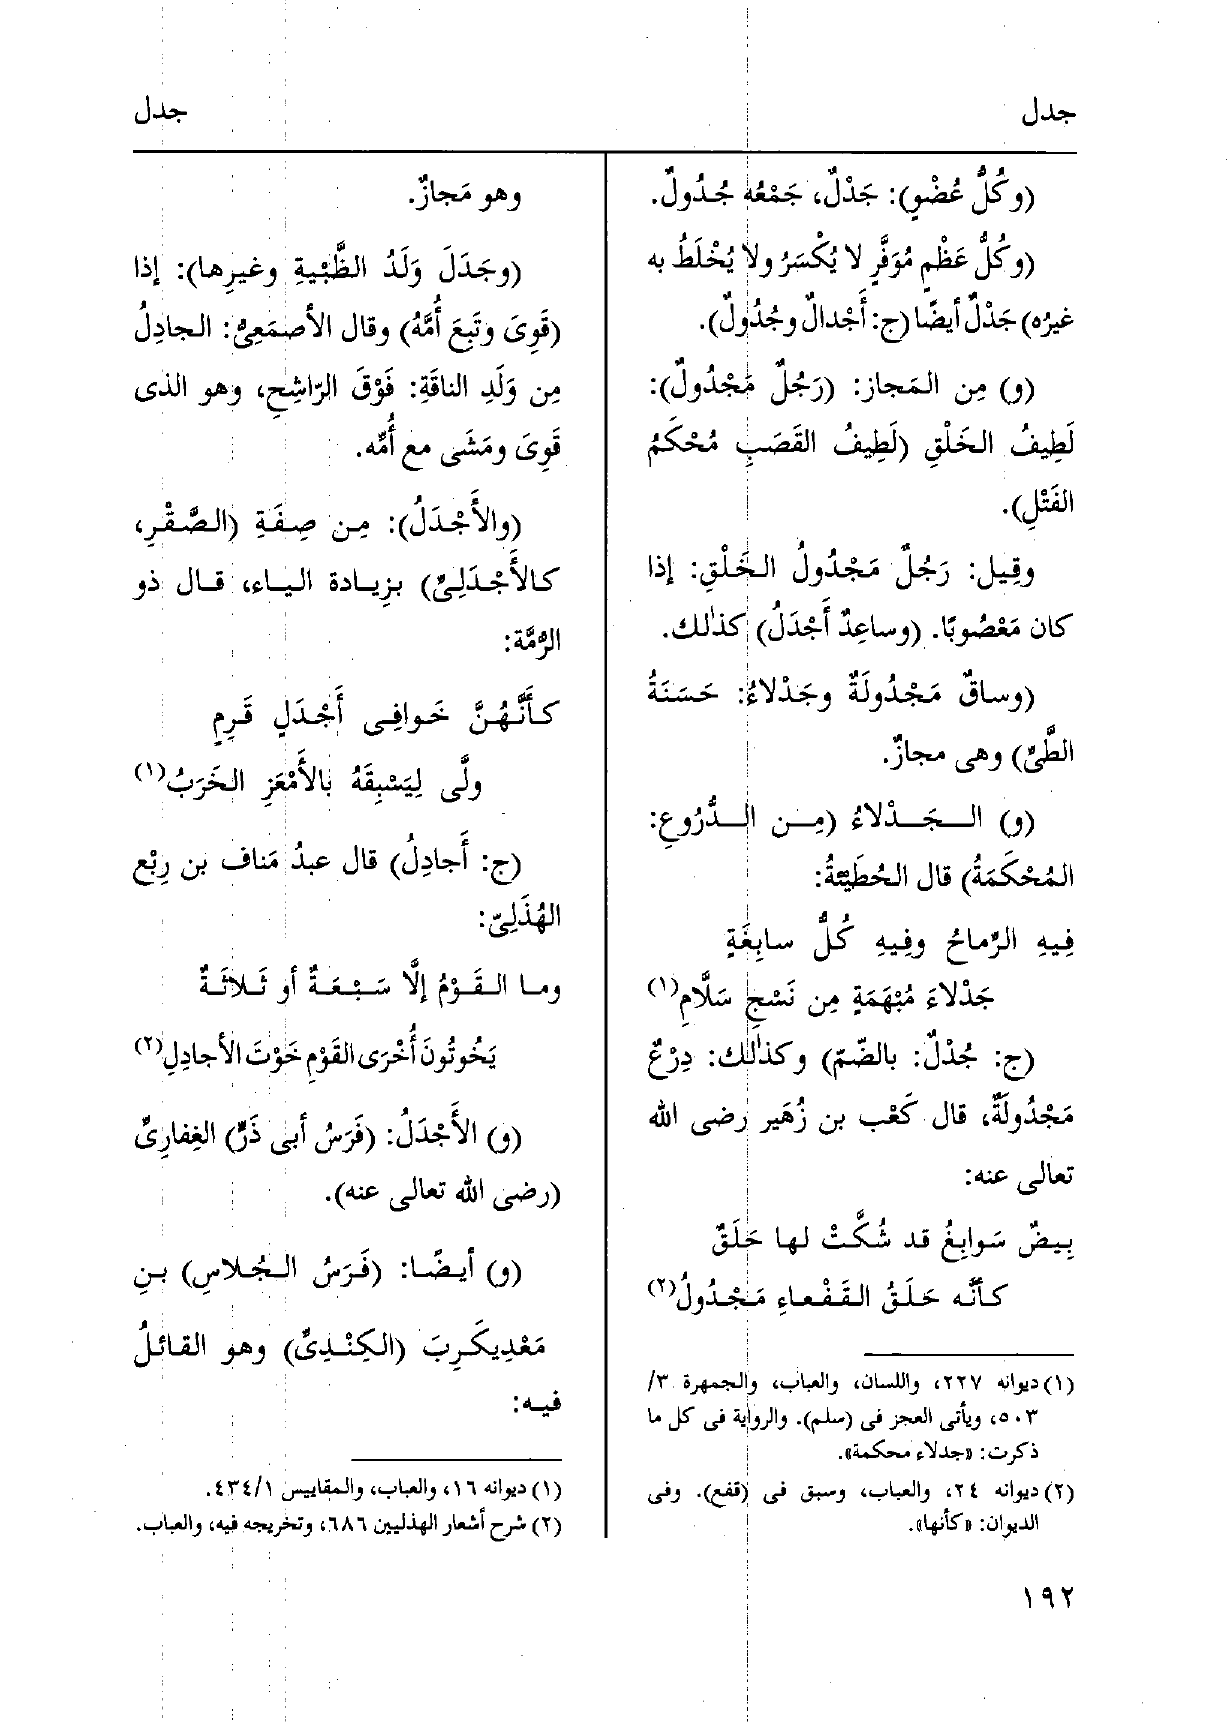 جدل
جدل
(وكُلُّ عُضْوٍ): جَدْلٌ، جَمْعُه جُدُولٌ.
(وكُلُّ عَظْمٍ مُوَفَّرٍ لا يُكْسَرُ ولا يُخْلَطُ به
غيرُه) جَدْلٌ أيضًا (ج: أَجْدالٌ وجُدُولٌ).
(و) مِن المَجاز: (رَجُلٌ مَجْدُولٌ):
لَطِيفُ الخَلْقِ (لَطِيفُ القَصَبِ مُحْكَمُ
الفَتْلِ).
وقِيل: رَجُلٌ مَجْدُولُ الخَلْقِ: إذا
كان مَعْصُوبًا. (وساعِدٌ أَجْدَلُ) كذٰلك.
(وساقٌ مَجْدُولَةٌ وجَدْلاءُ: حَسَنَةُ
الطَّىِّ) وهى مجازٌ.
(و) الجَدْلاءُ (مِن الدُّرُوعِ:
المُحْكَمَةُ) قال الحُطَيْئةُ:
فِيهِ الرِّماحُ وفِيهِ كُلُّ سابِغَةٍ
جَدْلاءَ مُبْهَمَةٍ مِن نَسْجِ سَلَّامِ(١)
(ج: جُدْلٌ: بالضّمّ) وكذٰلك: دِرْعٌ
مَجْدُولَةٌ، قال كَعْب بن زُهَير رضى الله
تعالى عنه:
بِيضٌ سَوابِغُ قد شُكَّتْ لها حَلَقٌ
كأنَّه حَلَقُ القَفْعاءِ مَجْدُولُ(٢)
(١) ديوانه ٢٢٧، واللسان، والعباب، والجمهرة ٣/
٥٠٣، ويأتى العجز فى (سلم). والرواية فى كل ما
ذكرت: «جدلاء محكمة».
(٢) ديوانه ٢٤، والعباب، وسبق فى (قفع). وفى
الديوان: «كأنها».
وهو مَجازٌ.
(وجَدَلَ وَلَدُ الظَّبْيةِ وغيرِها): إذا
(قَوِىَ وتَبِعَ أُمَّهُ) وقال الأصْمَعِىُّ: الجادِلُ
مِن وَلَدِ الناقَةِ: فَوْقَ الرّاشِحِ، وهو الذى
قَوِىَ ومَشَى مع أُمِّه.
(والأَجْدَلُ): مِن صِفَةِ (الصَّقْرِ،
كالأَجْدَلِىِّ) بزِيادة الياء، قال ذو
الرُّمَّة:
كأَنَّهُنَّ خَوافِى أَجْدَلٍ قَرِمٍ
ولَّى لِيَسْبِقَهُ بالأَمْعَزِ الخَرَبُ(١)
(ج: أَجادِلُ) قال عبدُ مَناف بن رِبْع
الهُذَلِىّ:
وما القَوْمُ إلَّا سَبْعَةٌ أو ثَلاثَةٌ
يَخُوتُونَ أُخْرَى القَوْمِ خَوْتَ الأَجادِلِ(٢)
(و) الأَجْدَلُ: (فَرَسُ أبى ذَرٍّ) الغِفارِىِّ
(رضى الله تعالى عنه).
(و) أيضًا: (فَرَسُ الجُلاسِ) بنِ
مَعْدِيكَرِبَ (الكِنْدِىِّ) وهو القائلُ
فيه:
(١) ديوانه ١٦، والعباب، والمقاييس ٤٣٤/١.
(٢) شرح أشعار الهذليين ٦٨٦، وتخريجه فيه، والعباب.
١٩٢